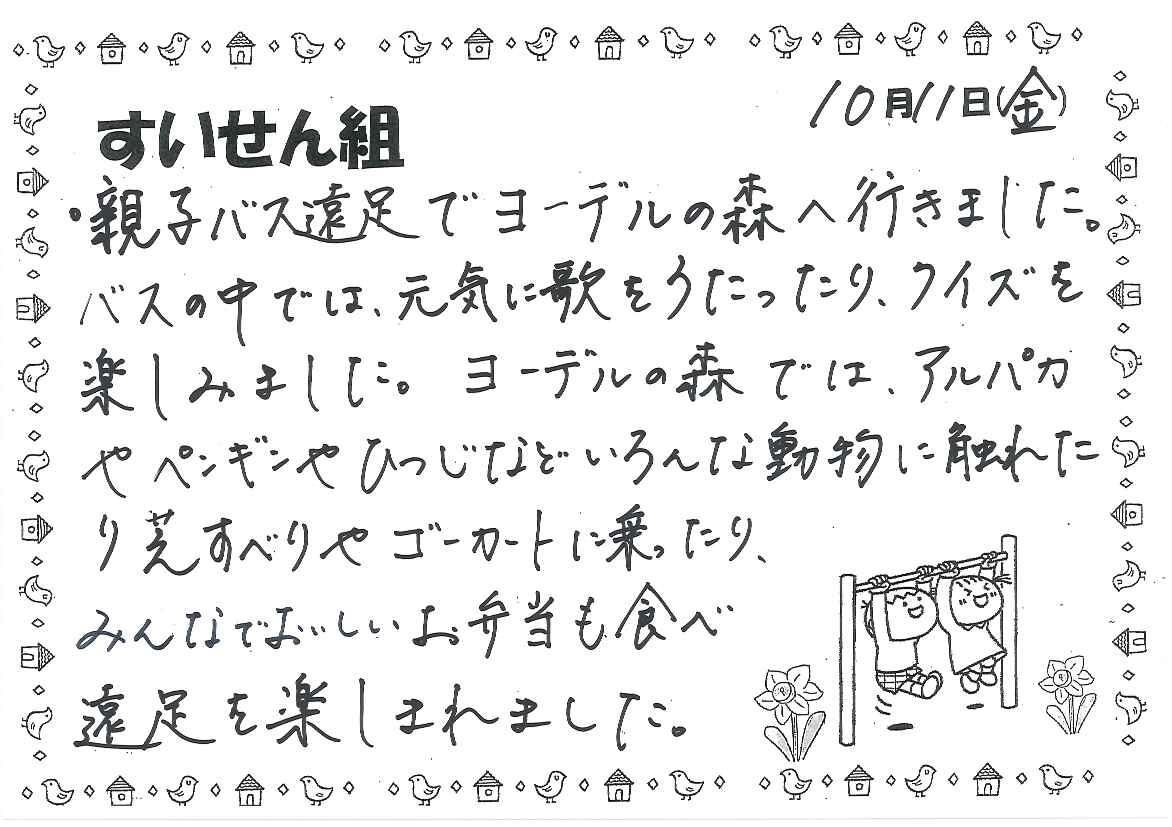 10月11日(金)
すいせん組
・親子バス遠足でヨーデルの森へ行きました。
バスの中では、元気に歌をうたったり、クイズを
楽しみました。ヨーデルの森では、アルパカ
やペンギンやひつじなどいろんな動物に触れた
り芝すべりやゴーカートに乗ったり、
みんなでおいしいお弁当も食べ
遠足を楽しまれました。